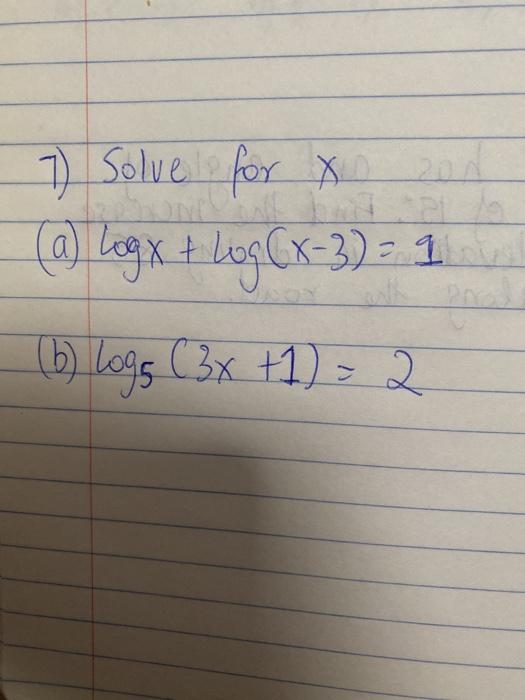 7) Solve for x
(a) logx + log(x-3) = 1
(b) log₅ (3x +1) = 2